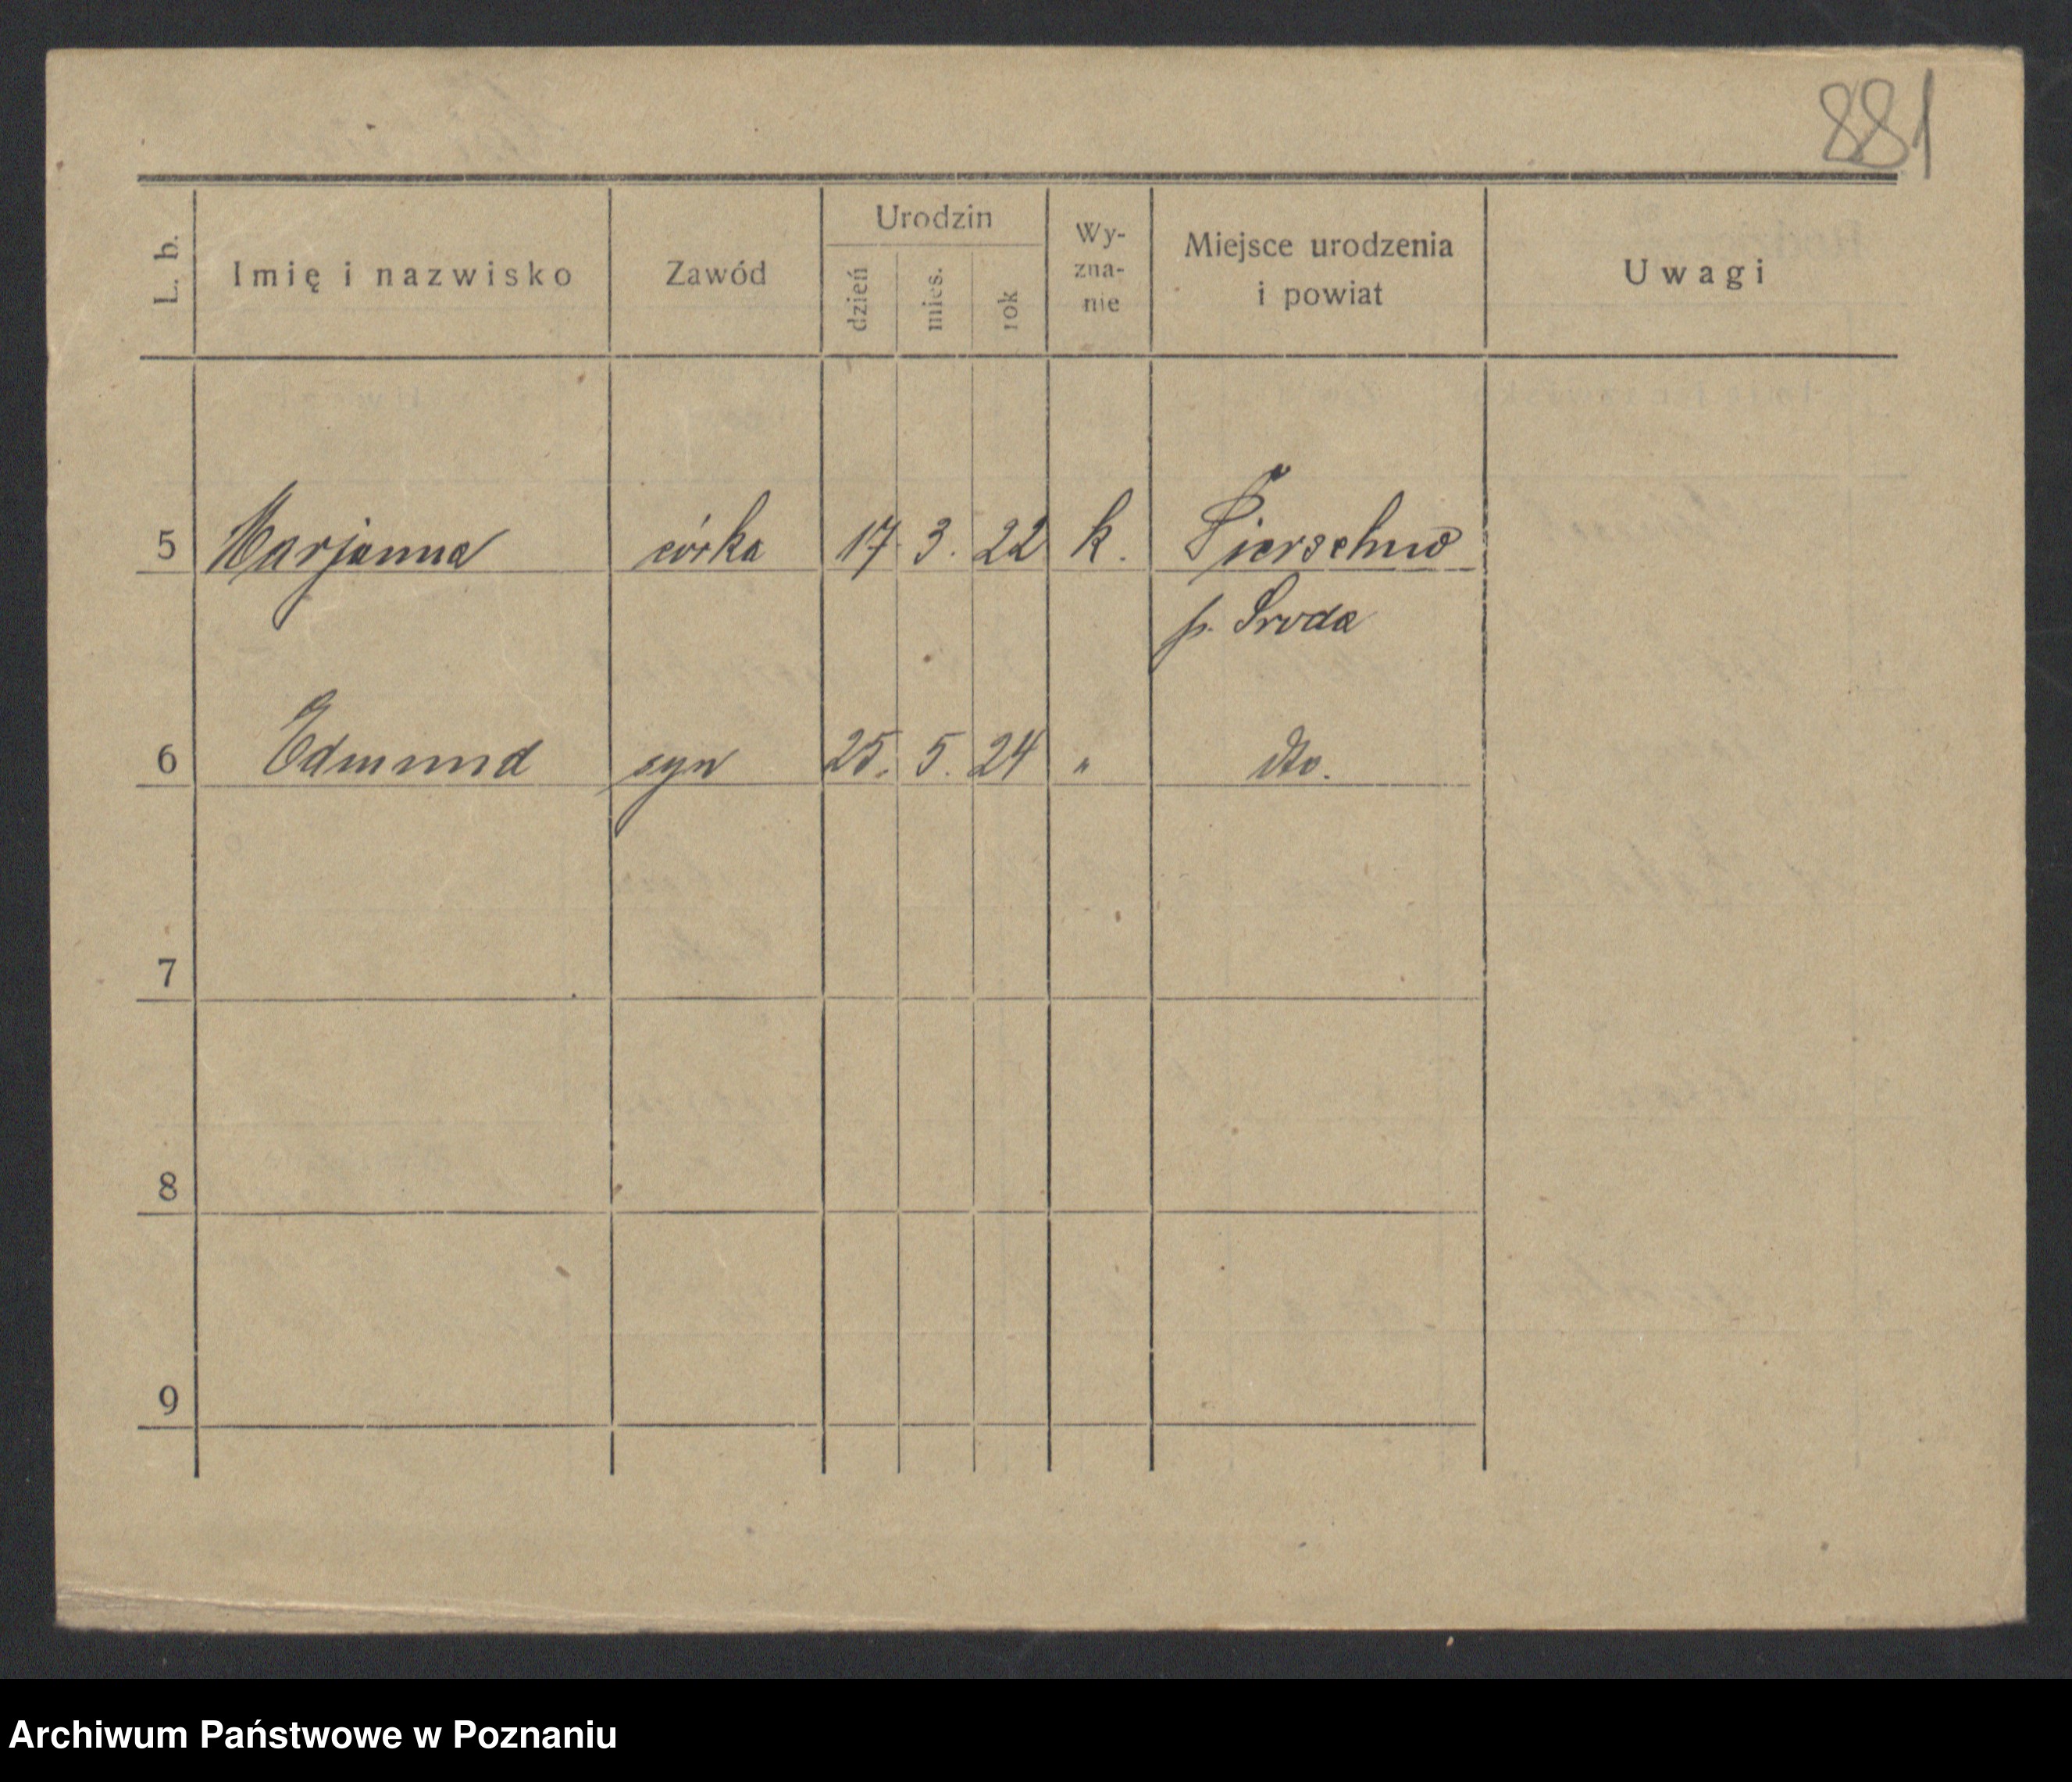 881
L. b.
Imię i nazwisko
Zawód
Urodzin
dzień
mies.
rok
Wy-
zna-
nie
Miejsce urodzenia
i powiat
Uwagi
5 Marjanna córka 17. 3. 22 k. Pierzchno
p. Sroda
6 Edmund syn 25. 5. 24 " dto.
7
8
9
Archiwum Państwowe w Poznaniu